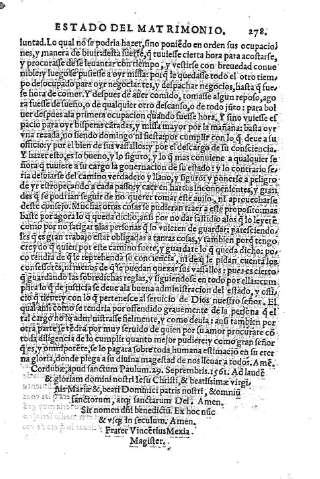 ESTADO DEL MATRIMONIO. 278.
luntad. Lo qual nõ se podria hazer, sino poniẽdo en orden sus ocupacio
nes, y manera de biuir desta suerte, q̃ tuuiesse cierta hora para acostarse,
y procurasse de se leuantar con tiempo, y vestirse con breuedad conue
nible y luego se pusiesse a oyr missa: porq̃ le quedasse todo el otro tiem
po desocupado para oyr negociantes, y despachar negocios, hasta q̃ fue
se hora de comer. Y despues de auer comido, tomasse algun reposo, ago
ra fuesse de sueño, o de qualquier otro descanso, o de todo jũto: para bol
uer despues a la primera occupacion quando fuesse hora. Y sino vuiesse es
pacio para oyr bisperas cãtadas, y missa mayor por la mañana: basta oyr
vna rezada, no siendo domingo ni fiesta: por cumplir con lo q̃ deue a su
officio: y por el bien de sus vassallos: y por el descargo de su consciencia.
Y hazer esto, es lo bueno, y lo siguro, y lo q̃ mas conuiene a qualquier se
ñora q̃ tuuiere a su cargo la gouernacion de su estado: y lo contrario se
ria desuiarse del camino verdadero y llano, y siguro: y ponerse a peligro
de yr estropeçando a cada passo, y caer en hartos inconuenientes, y gran
des q̃ se podrian seguir de no querer tomar este auiso, ni aprouecharse
deste consejo. Muchas otras cosas se pudieran traer a este proposito: mas
baste por agora lo q̃ queda dicho, ansi por no dar fastidio al q̃ lo leyere
como por no fatigar a las personas q̃ lo vuieren de guardar: pareciendo
les q̃ es gran trabajo estar obligadas a tantas cosas, y tambien porq̃ tengo
creydo q̃ quien por este camino fuere, y guardare lo q̃ queda dicho: po
co tendra de q̃ le reprehenda su conciencia, ni de q̃ le pidan cuenta los
confessores, ni menos de q̃ se puedan quexar sus vassallos: pues es cierto
q̃ guardando las sobredichas reglas, y siguiendose en todo por ellas: cum
pira lo q̃ de justicia se deue a la buena administracion del estado, y offi
cio q̃ tiene: y con lo q̃ pertenesce al seruicio de Dios nuestro señor. El
qual ansi como se tendria por offendido grauemente de la persona q̃
el tal cargo no le administrasse fielmente, y como deuia: ansi tambien por
otra parte se tẽdra por muy seruido de quien por su amor procurare cõ
toda diligencia de lo cumplir quanto mejor pudiere: y como gran señor
q̃ es, y omnipotẽte, se lo pagara sobre toda humana estimacion en su eter
na gloria, donde plega a su diuina magestad de nos lleuar a todos. Amẽ.
Cordubæ, apud sanctum Paulum. 29. Septembris. 1561. Ad laudẽ
& gloriam domini nostri Iesu Christi, & beatissimæ virgi
nis Mariæ &, beati Dominici patris nostri, & omniũ
sanctorum, atq; sanctarum Dei. Amen.
Sit nomen dñi benedictũ. Ex hoc nũc
& vsq; in seculum. Amen.
Frater Vincẽtius Mexia.
Magister.